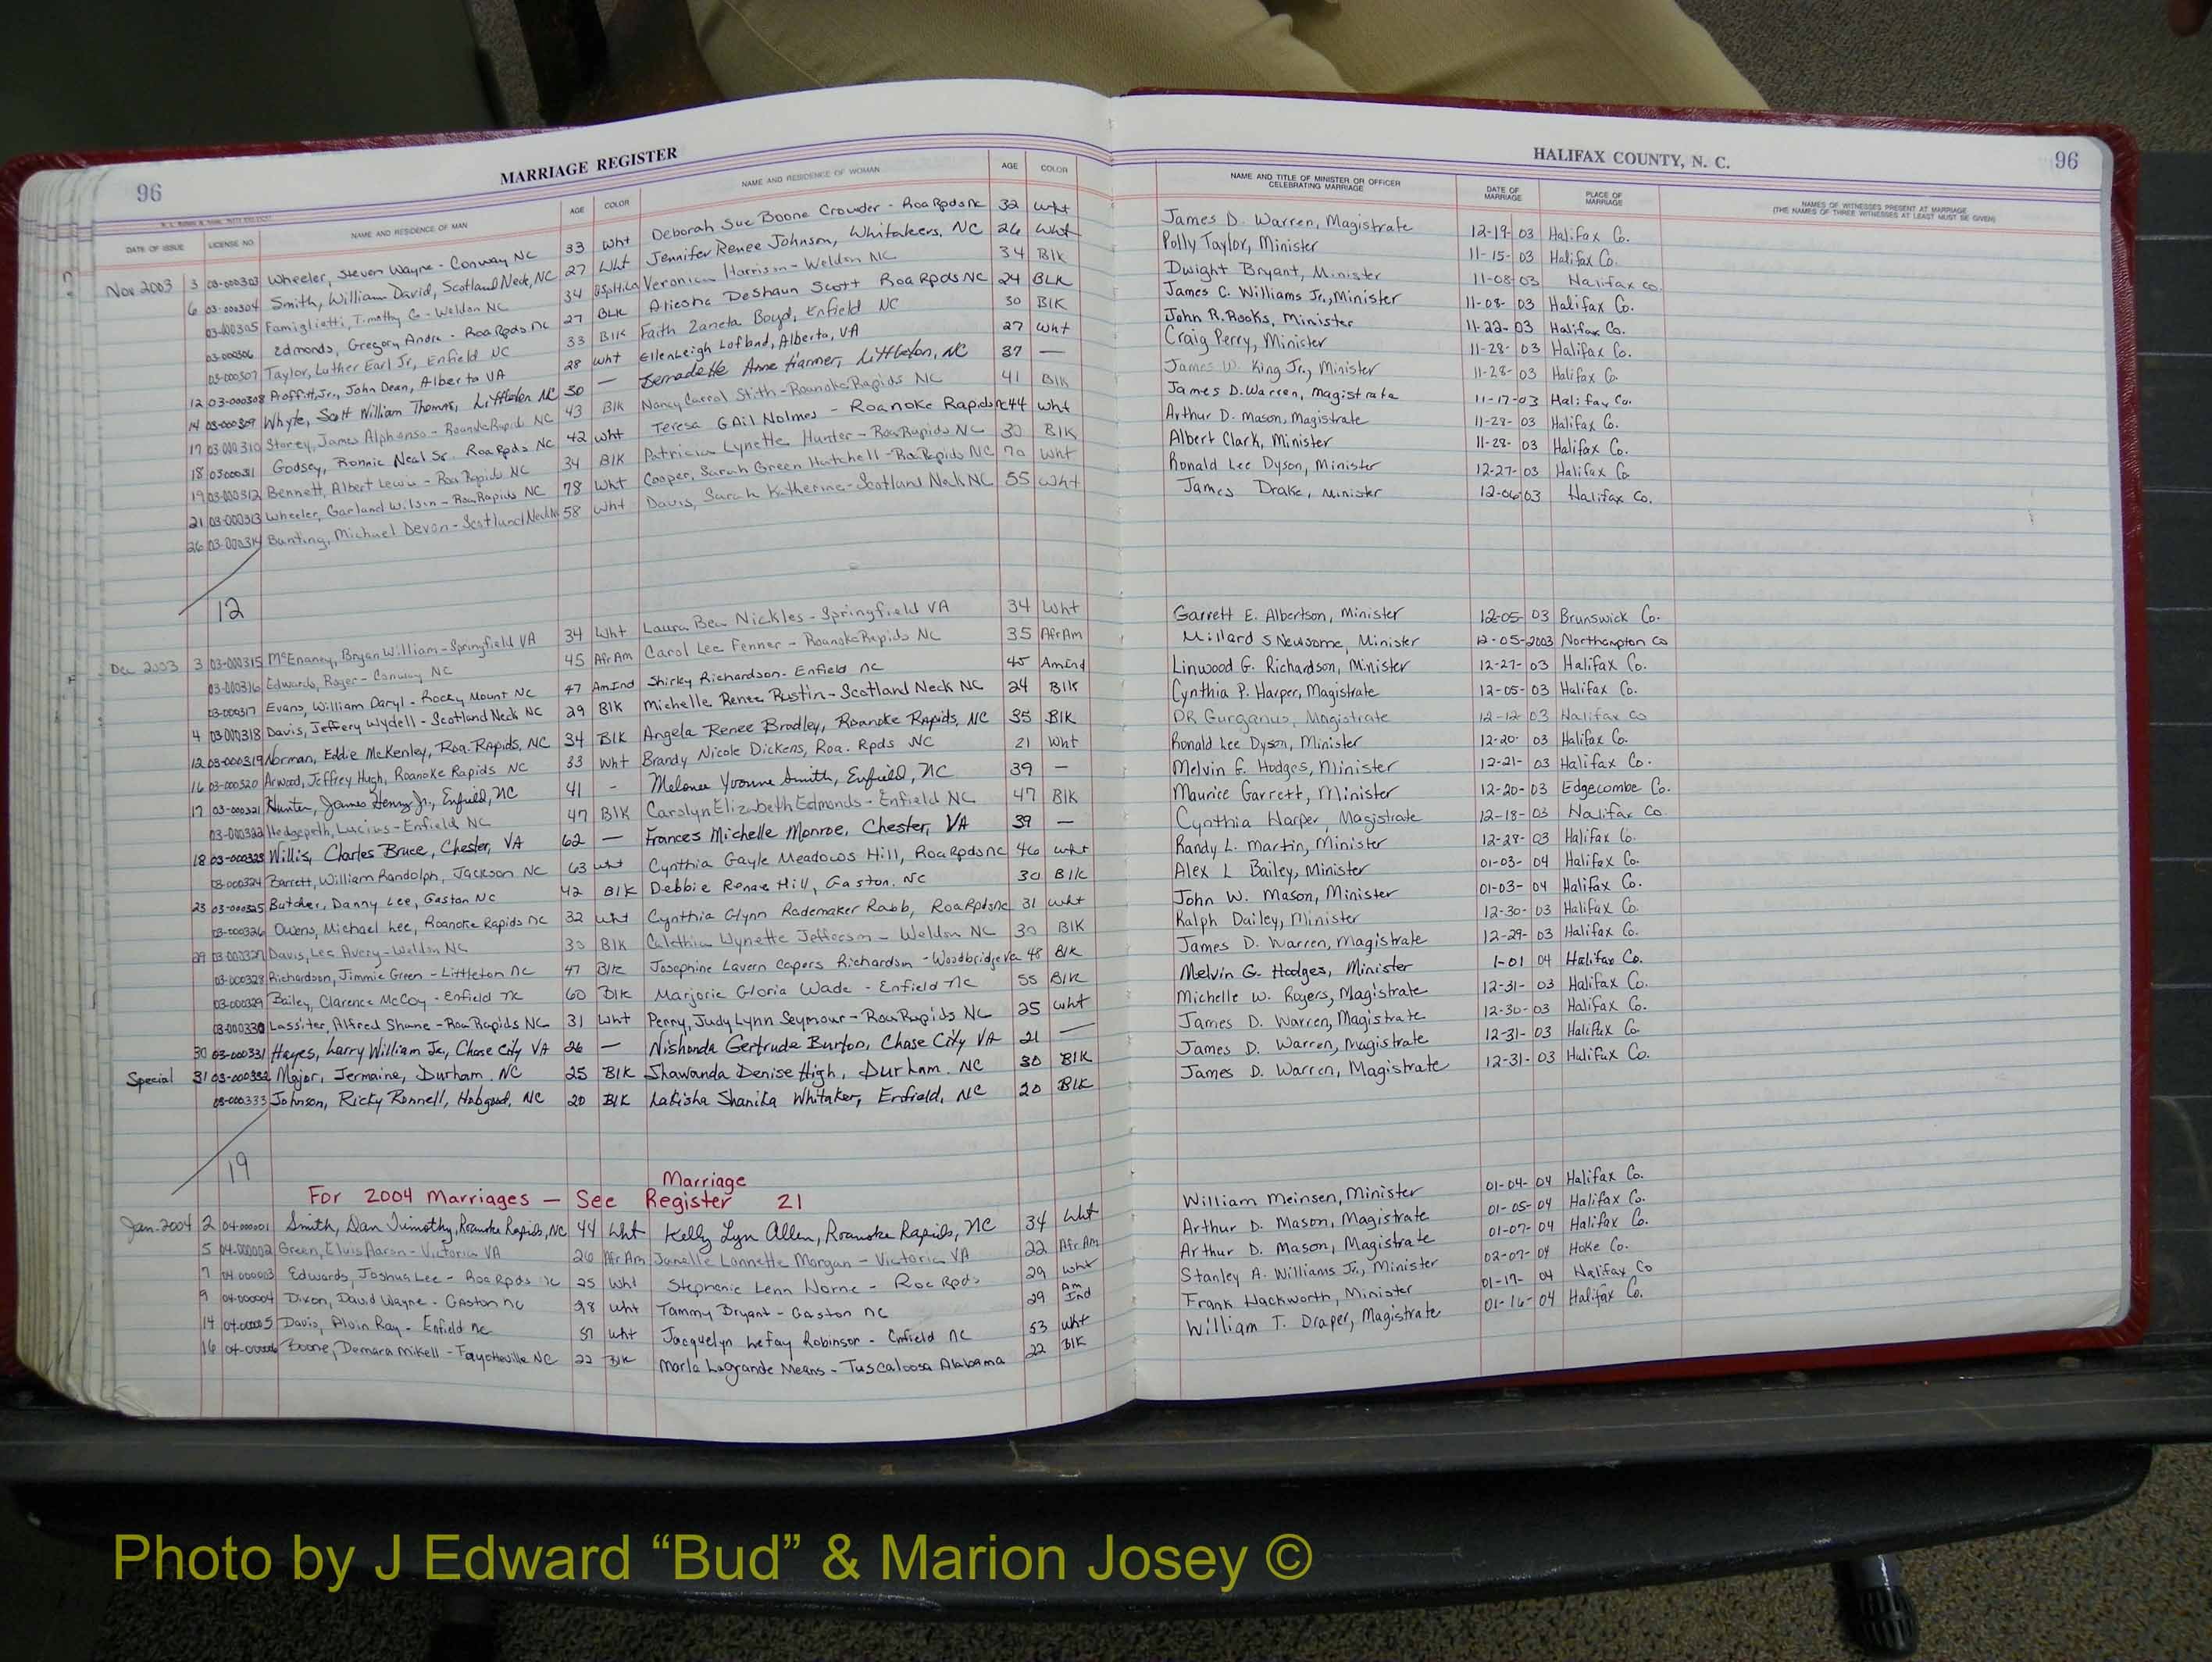 96
MARRIAGE REGISTER
HALIFAX COUNTY, N. C.
96
DATE OF ISSUE LICENSE NO. NAME AND RESIDENCE OF MAN AGE COLOR NAME AND RESIDENCE OF WOMAN AGE COLOR NAME AND TITLE OF MINISTER OR OFFICER CELEBRATING MARRIAGE DATE OF MARRIAGE PLACE OF MARRIAGE NAMES OF WITNESSES PRESENT AT MARRIAGE (THE NAMES OF THREE WITNESSES AT LEAST MUST BE GIVEN)
Nov 2003 3 03-000303 Wheeler, Steven Wayne - Conway NC 33 Wht Deborah Sue Boone Crowder - Roa Rpds nc 32 Wht James D. Warren, Magistrate 12-19-03 Halifax Co.
6 03-000304 Smith, William David, Scotland Neck, NC 27 Wht Jennifer Renee Johnson, Whitakers, NC 26 Wht Polly Taylor, Minister 11-15-03 Halifax Co.
03-000305 Famiglietti, Timothy G - Weldon NC 34 Veronica Harrison - Weldon NC 34 Blk Dwight Bryant, Minister 11-08-03 Halifax Co.
03-000306 Edmonds, Gregory Andre - Roa Rpds nc 27 BLK Aliesha DeShaun Scott Roa Rpds NC 24 BLK James C. Williams Jr., Minister 11-08-03 Halifax Co.
03-000307 Taylor, Luther Earl Jr, Enfield NC 33 Blk Faith Zaneta Boyd, Enfield NC 30 Blk John R. Rooks, Minister 11-22-03 Halifax Co.
12 03-000308 Proffitt, Jr., John Dean, Alberta VA 28 Wht Ellen Leigh Lofland, Alberta, VA 27 Wht Craig Perry, Minister 11-28-03 Halifax Co.
14 03-000309 Whyte, Scott William Thomas, Littleton NC 30 — Bernadette Anne Harmer, Littleton, NC 37 — James W. King Jr., Minister 11-28-03 Halifax Co.
17 03-000310 Storey, James Alphonso - Roanoke Rapids NC 43 Blk Nancy Carrol Stith - Roanoke Rapids NC 41 Blk James D. Warren, Magistrate 11-17-03 Halifax Co.
18 03000311 Godsey, Ronnie Neal Sr. Roa Rpds NC 42 Wht Teresa Gail Holmes - Roanoke Rapids nc 44 Wht Arthur D. Mason, Magistrate 11-28-03 Halifax Co.
19 03-000312 Bennett, Albert Lewis - Roa Rapids NC 34 Blk Patricia Lynette Hunter - Roa Rapids NC 30 Blk Albert Clark, Minister 11-28-03 Halifax Co.
21 03-000313 Wheeler, Garland Wilson - Roa Rapids NC 78 Wht Cooper, Sarah Green Hatchell - Roa Rapids NC 70 Wht Ronald Lee Dyson, Minister 12-27-03 Halifax Co
26 03-000314 Bunting, Michael Devon - Scotland Neck NC 58 Wht Davis, Sarah Katherine - Scotland Neck NC 55 Wht James Drake, Minister 12-06-03 Halifax Co.
12
Dec 2003 3 03-000315 McEnaney, Bryan William - Springfield VA 34 Wht Laura Bea Nickles - Springfield VA 34 Wht Garrett E. Albertson, Minister 12-05-03 Brunswick Co.
03-000316 Edwards, Roger - Conway NC 45 AfrAm Carol Lee Fenner - Roanoke Rapids NC 35 AfrAm Millard S Newsome, Minister 12-05-2003 Northampton Co
03-000317 Evans, William Daryl - Rocky Mount NC 47 AmInd Shirley Richardson - Enfield nc 45 AmInd Linwood G. Richardson, Minister 12-27-03 Halifax Co.
4 03-000318 Davis, Jeffery Wydell - Scotland Neck NC 29 Blk Michelle Renee Rustin - Scotland Neck NC 24 Blk Cynthia P. Harper, Magistrate 12-05-03 Halifax Co.
12 03-000319 Norman, Eddie McKenley, Roa. Rapids, NC 34 Blk Angela Renee Bradley, Roanoke Rapids, NC 35 Blk DR Gurganus, Magistrate 12-12-03 Halifax Co
16 03-000320 Arwood, Jeffrey Hugh, Roanoke Rapids NC 33 Wht Brandy Nicole Dickens, Roa. Rpds NC 21 Wht Ronald Lee Dyson, Minister 12-20-03 Halifax Co.
17 03-000321 Hunter, James Henry Jr., Enfield, NC 41 - Melonee Yvonne Smith, Enfield, NC 39 — Melvin G. Hodges, Minister 12-21-03 Halifax Co.
03-000322 Hedgepeth, Lucius - Enfield NC 47 Blk Carolyn Elizabeth Edmonds - Enfield NC 47 Blk Maurice Garrett, Minister 12-20-03 Edgecombe Co.
18 03-000323 Willis, Charles Bruce, Chester, VA 62 — Frances Michelle Monroe, Chester, VA 39 — Cynthia Harper, Magistrate 12-18-03 Halifax Co
03-000324 Barrett, William Randolph, Jackson NC 63 Wht Cynthia Gayle Meadows Hill, Roa Rpds nc 46 Wht Randy L. Martin, Minister 12-28-03 Halifax Co.
23 03-000325 Butcher, Danny Lee, Gaston NC 42 Blk Debbie Renae Hill, Gaston, NC 30 Blk Alex L Bailey, Minister 01-03-04 Halifax Co.
03-000326 Owens, Michael Lee, Roanoke Rapids nc 32 Wht Cynthia Glynn Rademaker Rabb, Roa Rpds nc 31 Wht John W. Mason, Minister 01-03-04 Halifax Co.
29 03-000327 Davis, Lee Avery - Weldon NC 30 Blk Wynette Jefferson - Weldon NC 30 Blk Ralph Dailey, Minister 12-30-03 Halifax Co.
03-000328 Richardson, Jimmie Green - Littleton nc 47 Blk Josephine Lavern Capers Richardson - Woodbridge Va 48 Blk James D. Warren, Magistrate 12-29-03 Halifax Co.
03-000329 Bailey, Clarence McCoy - Enfield nc 60 Blk Marjorie Gloria Wade - Enfield nc 55 Blk Melvin G. Hodges, Minister 1-01 04 Halifax Co.
03-000330 Lassiter, Alfred Shane - Roa Rapids NC 31 Wht Perry, Judy Lynn Seymour - Roa Rapids NC 25 Wht Michelle W. Rogers, Magistrate 12-31-03 Halifax Co.
30 03-000331 Hayes, Larry William Jr., Chase City VA 26 — Nishonda Gertrude Burton, Chase City VA 21 — James D. Warren, Magistrate 12-30-03 Halifax Co.
Special 31 03-000332 Major, Jermaine, Durham, NC 25 Blk Shawanda Denise High, Durham, NC 30 Blk James D. Warren, Magistrate 12-31-03 Halifax Co
03-000333 Johnson, Ricky Ronnell, Hobgood, NC 20 Blk Lakisha Shanika Whitaker, Enfield, NC 20 Blk James D. Warren, Magistrate 12-31-03 Halifax Co.
19
For 2004 Marriages — See Marriage Register 21
Jan. 2004 2 04-000001 Smith, Dan Timothy, Roanoke Rapids, NC 44 Wht Kelly Lyn Allen, Roanoke Rapids, NC 34 Wht William Meinsen, Minister 01-04-04 Halifax Co.
5 04-000002 Green, Elvis Aaron - Victoria VA 26 AfrAm Janelle Lonnette Morgan - Victoria VA 22 AfrAm Arthur D. Mason, Magistrate 01-05-04 Halifax Co.
7 04-000003 Edwards, Joshua Lee - Roa Rpds nc 25 Wht Stephanie Lenn Horne - Roa Rpds 29 Wht Arthur D. Mason, Magistrate 01-07-04 Halifax Co.
9 04-000004 Dixon, David Wayne - Gaston nc 28 Wht Tammy Bryant - Gaston nc 29 Am Ind Stanley A. Williams Jr., Minister 02-07-04 Hoke Co.
14 04-00005 Davis, Alvin Ray - Enfield nc 51 Wht Jacquelyn Lefay Robinson - Enfield nc 53 Wht Frank Hackworth, Minister 01-17-04 Halifax Co
16 04-00006 Boone, Demara Mikell - Fayetteville NC 22 Blk Marla Lagrande Means - Tuscaloosa Alabama 22 Blk William T. Draper, Magistrate 01-16-04 Halifax Co.
Photo by J Edward “Bud” & Marion Josey ©